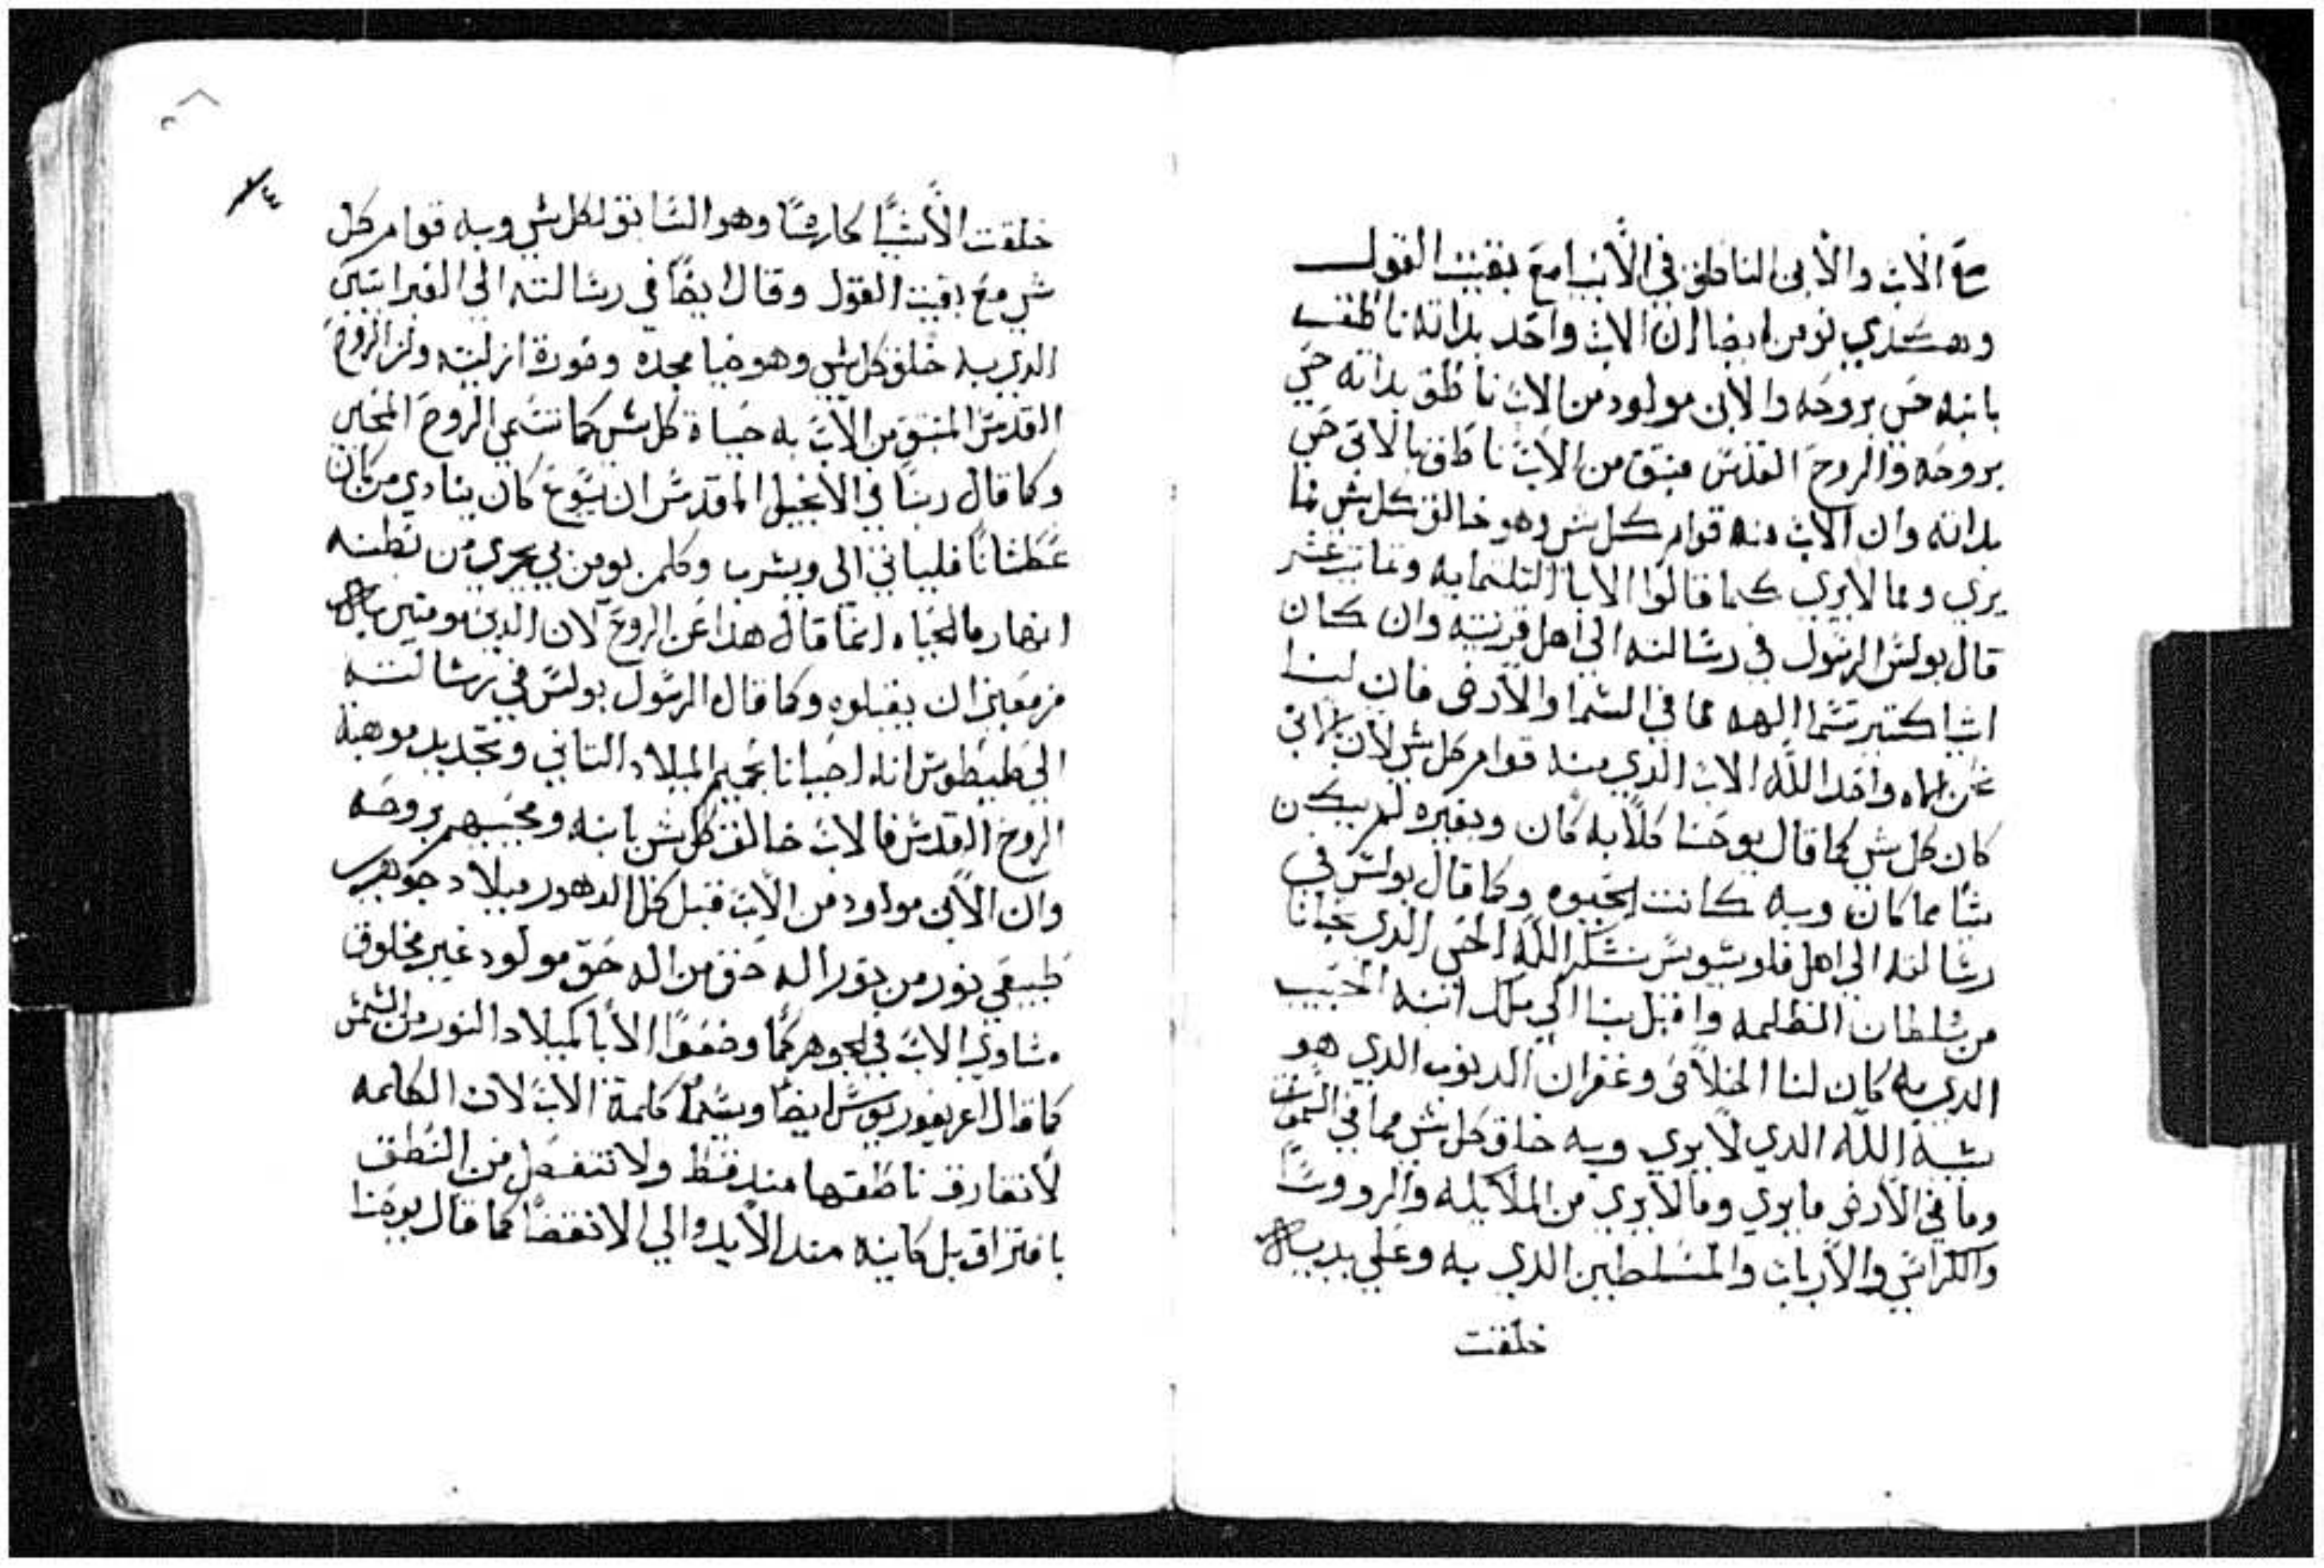 مع الاب والابن الناطق في الانبيا مع بقيت القول
وهكدي نومن ايضا ان الاب واحد بداته ناطق
بابنه حي بروحه والابن مولود من الاب ناطق بداته حي
بروحه والروح القدس منبتق من الاب ناطق بالابن حي
بداته وان الاب منه قوام كل شي وهو خالق كل شي مما
يري ومما لا يري كما قالوا الابا التلتمايه وتمانيت عشر
قال بولس الرسول في رسالته الي اهل قرنتيه وان كان
اشيا كتير تسما الهه مما في السما والارض فان لنا
نحن اله واحد الله الاب الدي منه قوام كل شي لان بالابن
كان كل شي كما قال يوحنا كلاً به كان وبغيره لم يكن
شا مما كان وبه كانت الحيوه وكما قال بولس في
رسالته الي اهل قلوسيوس نشكر الله الحي الدي نجانا
من سلطان الظلمه واقبل بنا الي ملك ابنه الحبيب
الدي به كان لنا الخلاص وغفران الدنوب الدي هو
شبه الله الدي لا يري وبه خلق كل شي مما في السموات
وما في الارض ما يري وما لا يري من الملايكه والرووسا
والكراسي والارباب والمسلطين الدي به وعلي يديه
خلقت
خلقت الاشيا كلها وهو السابق لكل شي وبه قوام كل
شي مع بقيت القول وقال ايضاً في رسالته الي العبرانيين
الدي به خلق كل شي وهو ضيا مجده وصورة ازليته ولن الروح
القدس المنبتق من الاب به حياة كل شي كما تسمي الروح المحيي
وكما قال ربنا في الانجيل المقدس ان يسوع كان ينادي من كان
عطشاناً فلياتي الي ويشرب وكلمن يومن بي يجري من بطنه
انهار ما الحياه انما قال هدا عن الروح لان الدين يومنين به
مزمعين ان يقبلوه وكما قال الرسول بولس في رسالته
الي طيطوس انه احيانا بحميم الميلاد التاني وتجديد موهبة
الروح القدس فالاب خالق كل شي بابنه ومحييهم بروحه
وان الابن مولود من الاب قبل كل الدهور ميلاد جوهري
طبيعي نور من نور اله حق من اله حق مولود غير مخلوق
مساوي الاب في الجوهر كما وضعوا الابا كميلاد النور من الشمس
كما قال اغريغوريوس ايضا ويسما كلمة الاب لان الكلمه
لا تفارق ناطقها مند قط ولا تنفصل من النطق
بافتراق بل كاينه مند الابد والي الانقضا كما قال يوحنا